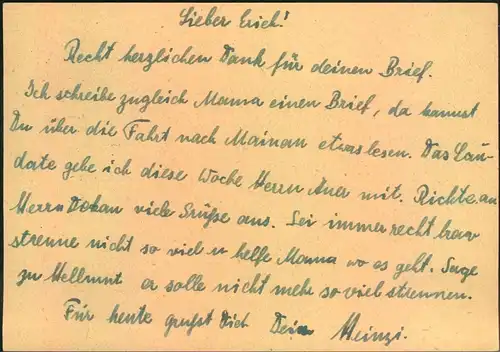 Lieber Erich!
Recht herzlichen Dank für deinen Brief.
Ich schreibe zugleich Mama einen Brief, da kannst
Du über die Fahrt nach Mainau etwas lesen. Das Lau-
date gebe ich diese Woche Herrn Auer mit. Richte an
Herrn Dekan viele Grüße aus. Sei immer recht brav
strenne nicht so viel u helfe Mama wo es geht. Sage
zu Hellmut er solle nicht mehr so viel strennen.
Für heute grüßt Dich Dein Heinzi.